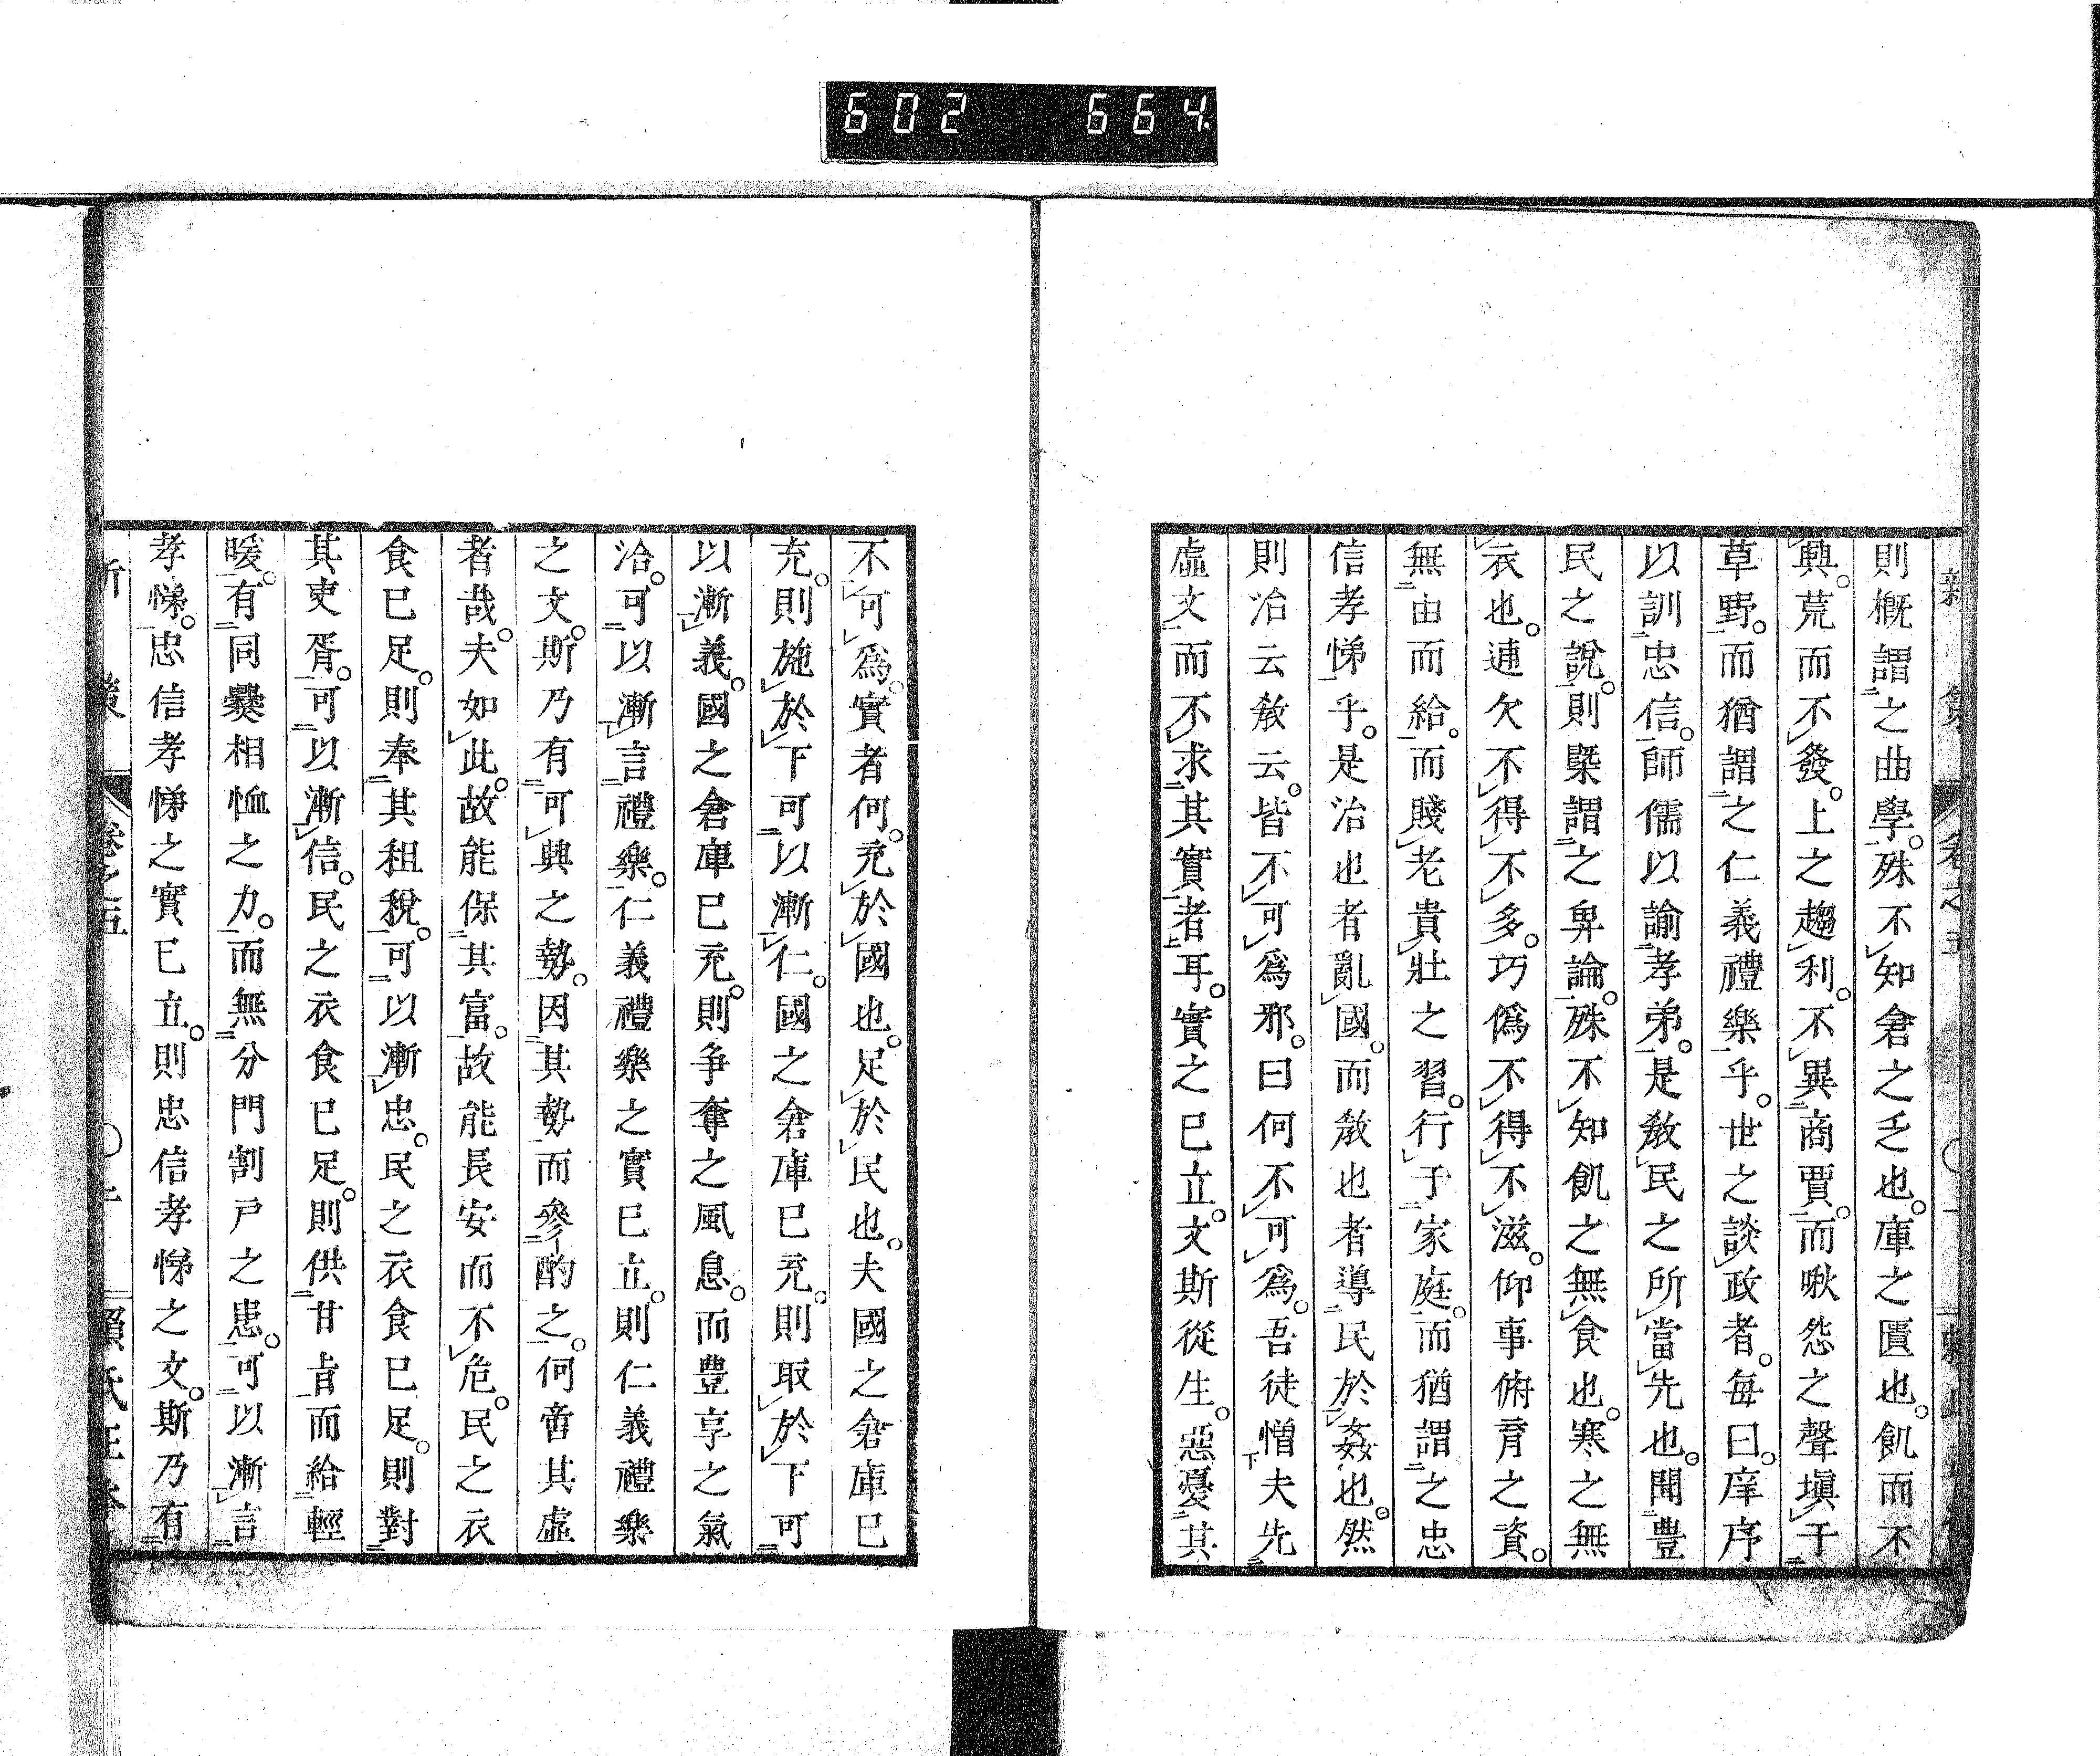 602 664
則概謂之曲學。殊不知倉之乏也。庫之匱也。飢而不
興。荒而不發。上之趨利。不異商賈。而啾怨之聲塡于
草野。而猶謂之仁義禮樂乎。世之談政者。每曰。庠序
以訓忠信。師儒以諭孝弟。是敎民之所當先也。聞豊
民之說。則槩謂之卑論。殊不知飢之無食也。寒之無
衣也。逋欠不得不多。巧僞不得不滋。仰事俯育之資。
無由而給。而賤老貴壯之習。行于家庭。而猶謂之忠
信孝悌乎。是治也者亂國。而敎也者導民於姦也。然
則治云敎云。皆不可爲邪。曰何不可爲。吾徒憎夫先
虛文而不求其實者耳。實之已立。文斯從生。惡憂其
不可爲。實者何。充於國也。足於民也。夫國之倉庫已
充。則施於下可以漸仁。國之倉庫已充。則取於下可
以漸義。國之倉庫已充。則爭奪之風息。而豊享之氣
洽。可以漸言禮樂。仁義禮樂之實已立。則仁義禮樂
之文。斯乃有可興之勢。因其勢而參酌之。何啻其虛
者哉。夫如此。故能保其富。故能長安而不危。民之衣
食已足。則奉其租稅。可以漸忠。民之衣食已足。則對
其吏胥。可以漸信。民之衣食已足。則供甘旨而給輕
暖。有同爨相恤之力。而無分門割戶之患。可以漸言
孝悌。忠信孝悌之實已立。則忠信孝悌之文。斯乃有
新策 卷之五 賴氏正本